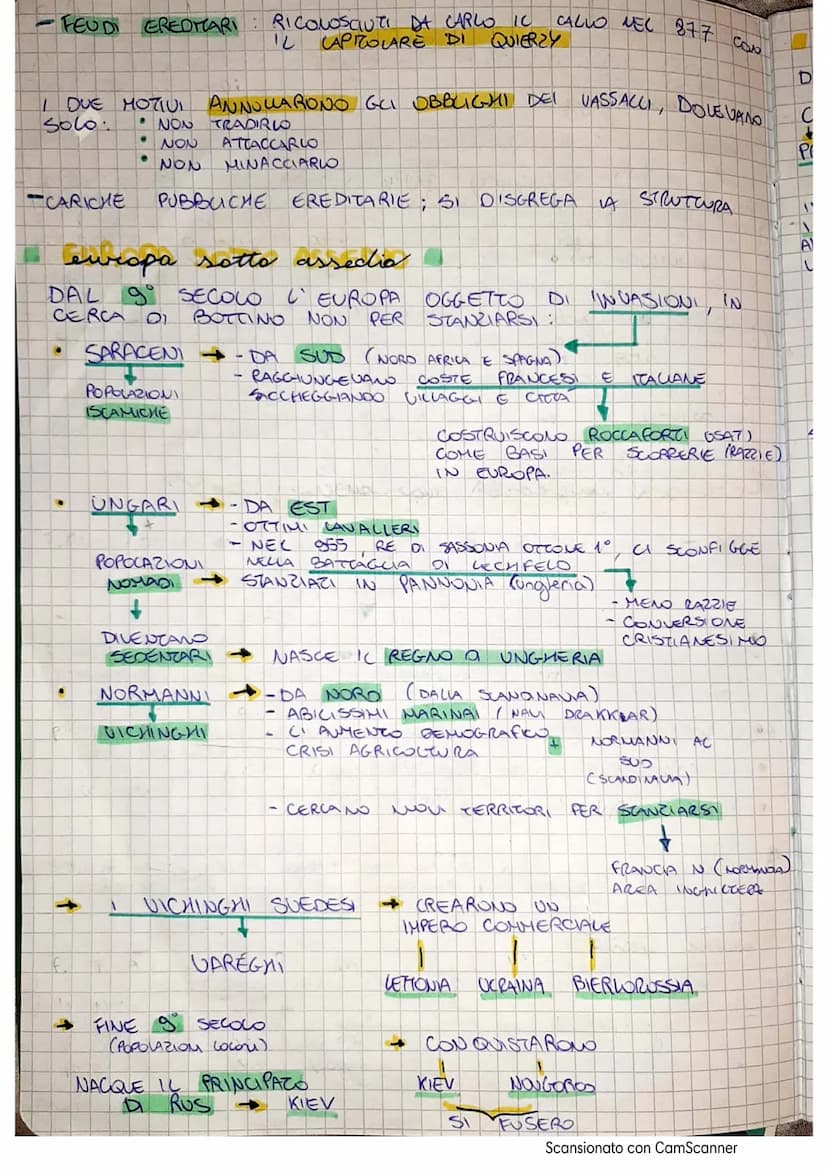 - FEUDI EREDITARI : RICONOSCIUTI DA CARLO IL CALVO NEL 877 CON
IL CAPITOLARE DI QUIERZY
I DUE MOTIVI ANNULLARONO GLI OBBLIGHI DEI VASSALLI, DOVEVANO
SOLO: • NON TRADIRLO
• NON ATTACCARLO
• NON MINACCIARLO
- CARICHE PUBBLICHE EREDITARIE; SI DISGREGA LA STRUTTURA
europa sotto assedio
DAL 9° SECOLO L'EUROPA OGGETTO DI INVASIONI, IN
CERCA DI BOTTINO NON PER STANZIARSI:
• SARACENI → - DA SUD (NORD AFRICA E SPAGNA)
- RAGGIUNGEVANO COSTE FRANCESI E ITALIANE
SACCHEGGIANDO VILLAGGI E CITTÀ
POPOLAZIONI
ISLAMICHE
COSTRUISCONO ROCCAFORTI (USATI)
COME BASI PER SCORRERIE (RAZZIE)
IN EUROPA.
• UNGARI → - DA EST
- OTTIMI CAVALLERI
- NEL 955, RE DI SASSONIA OTTONE 1°, LI SCONFIGGE
NELLA BATTAGLIA DI LECHFELD
POPOLAZIONI
NOMADI → STANZIATI IN PANNONIA (ungheria)
- MENO RAZZIE
- CONVERSIONE
CRISTIANESIMO
DIVENTANO
SEDENTARI → NASCE IL REGNO D UNGHERIA
• NORMANNI → - DA NORD (DALLA SCANDINAVIA)
- ABILISSIMI MARINAI (NAVI DRAKKAR)
VICHINGHI
- L'AUMENTO DEMOGRAFICO +
CRISI AGRICOLTURA
NORMANNI AL
SUD
(SCANDINAVIA)
- CERCANO NUOVI TERRITORI PER STANZIARSI
FRANCIA N (NORMANDIA)
AREA INGHILTERRA
→ I VICHINGHI SVEDESI → CREARONO UN
IMPERO COMMERCIALE
VARÉGHI
LETTONIA UCRAINA BIERLORUSSIA
→ FINE 9° SECOLO
(POPOLAZIONI LOCALI)
→ CONQUISTARONO
NACQUE IL PRINCIPATO
DI RUS → KIEV
KIEV NOVGOROD
SI FUSERO
Scansionato con CamScanner